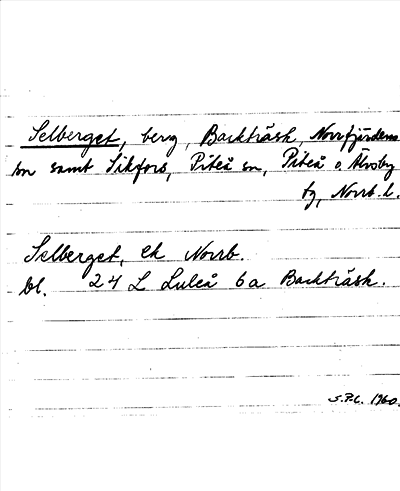 Selberget, berg, Backträsk, Norrfjärdens
sn samt Sikfors, Piteå sn, Piteå o. Älvsby
tg, Norrb. l.
Selberget, ek Norrb.
bl. 24 L Luleå 6a Backträsk.
S.P.L. 1960.